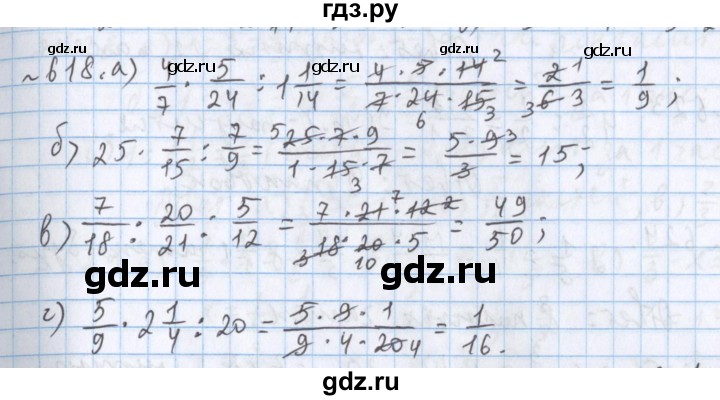 гдз.ру
№618. а) 4/7 · 5/24 : 1 1/14 = 4 · 5 · 14 2 / 7 · 24 6 · 15 3 = 2 1 / 3 6 · 3 = 1/9 ;
б) 25 · 7/15 : 7/9 = 5 25 · 7 · 9 / 1 · 15 3 · 7 = 5 · 9 3 / 3 = 15;
в) 7/18 : 20/21 : 5/12 = 7 · 21 7 · 12 2 / 3 18 · 20 10 · 5 = 49/50 ;
gdz.ru gdz.ru
г) 5/9 · 2 1/4 : 20 = 5 · 9 · 1 / 9 · 4 · 20 4 = 1/16.
gdz.ru